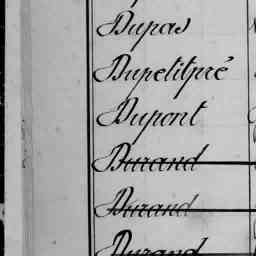 Dupas
Dupetitpré
Dupont
Durand
Durand
Durand